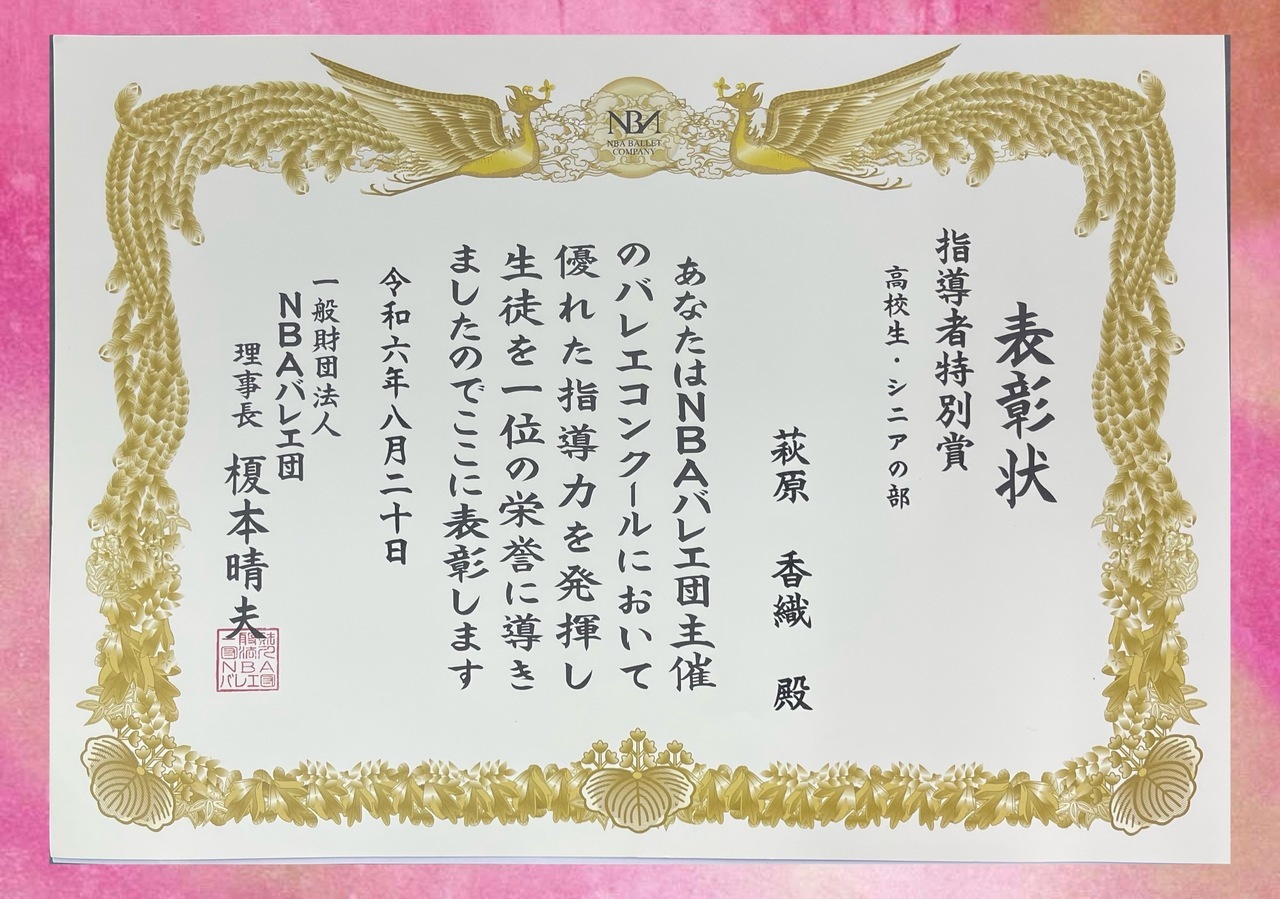 NBA
NBA BALLET
COMPANY
表彰状
指導者特別賞
高校生・シニアの部
萩原 香織 殿
あなたはNBAバレエ団主催
のバレエコンクールにおいて
優れた指導力を発揮し
生徒を一位の栄誉に導き
ましたのでここに表彰します
令和六年八月二十日
一般財団法人
NBAバレエ団
理事長 榎本晴夫
一般財
団法人
NBA
バレエ団